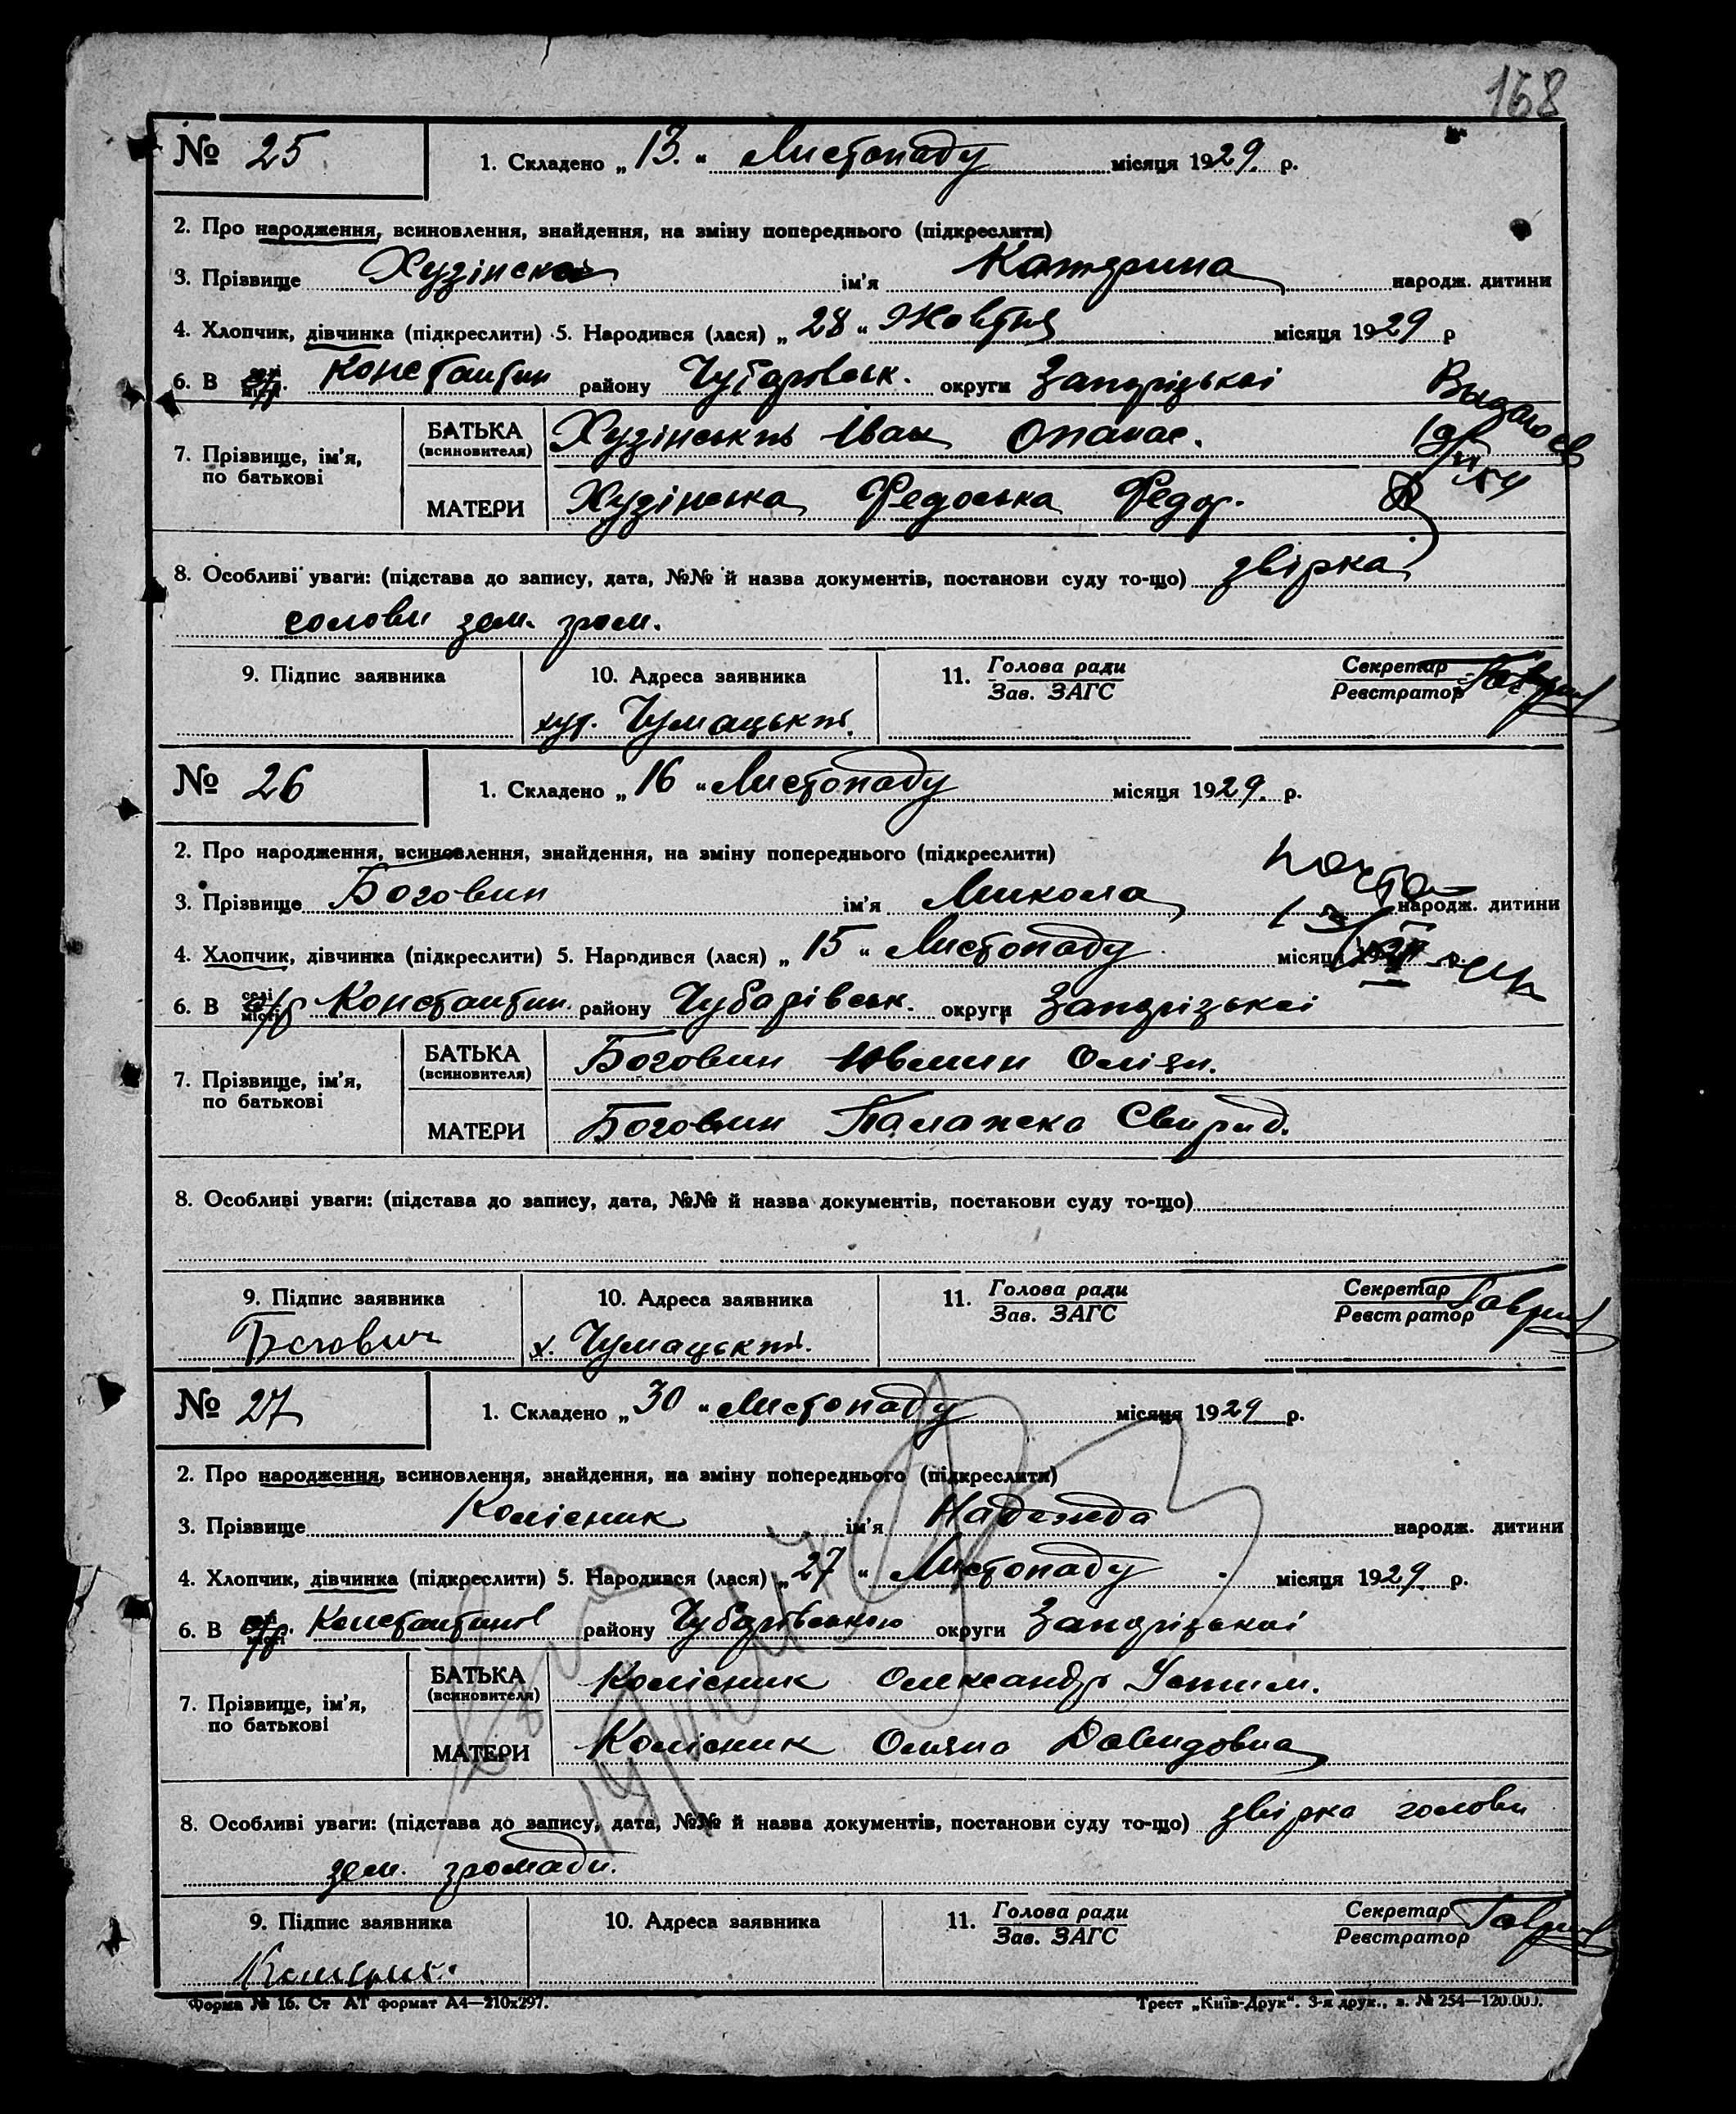 168
№ 25 1. Складено „13.“ Листопаду місяця 1929. р.
2. Про народження, всиновлення, знайдення, на зміну попереднього (підкреслити)
3. Прізвище Хузінска ім'я Катерина народж. дитини
4. Хлопчик, дівчинка (підкреслити) 5. Народився (лася) „28“ Жовтня місяця 1929 р
6. В Константин району Чубарівськ. округи Запорізькоі
7. Прізвище, ім'я, по батькові
БАТЬКА (всиновителя) Хузінський Іван Опанас.
МАТЕРИ Хузінська Федоська Федор.
8. Особливі уваги: (підстава до запису, дата, №№ й назва документів, постанови суду то-що) звірка
голови зем. гром.
9. Підпис заявника 10. Адреса заявника 11. Голова ради Зав. ЗАГС Секретар Реєстратор
хут. Чумацький.
№ 26 1. Складено „16“ Листопаду місяця 1929. р.
2. Про народження, всиновлення, знайдення, на зміну попереднього (підкреслити)
3. Прізвище Боговин ім'я Микола народж. дитини
4. Хлопчик, дівчинка (підкреслити) 5. Народився (лася) „15“ Листопаду місяця
6. В селі місті Константин. району Чубарівськ. округи Запорізькоі
7. Прізвище, ім'я, по батькові
БАТЬКА (всиновителя) Боговин
МАТЕРИ Боговин Палажка Свирид.
8. Особливі уваги: (підстава до запису, дата, №№ й назва документів, постанови суду то-що)
9. Підпис заявника 10. Адреса заявника 11. Голова ради Зав. ЗАГС Секретар Реєстратор
Боговин х. Чумацький.
№ 27 1. Складено „30“ Листопаду місяця 1929 р.
2. Про народження, всиновлення, знайдення, на зміну попереднього (підкреслити)
3. Прізвище Колісник ім'я Надежда народж. дитини
4. Хлопчик, дівчинка (підкреслити) 5. Народився (лася) „27“ Листопаду місяця 1929 р.
6. В Константинов району Чубарівського округи Запорізькоі
7. Прізвище, ім'я, по батькові
БАТЬКА (всиновителя) Колісник Олександр Устим.
МАТЕРИ Колісник Оляна Давидовна
8. Особливі уваги: (підстава до запису, дата, №№ й назва документів, постанови суду то-що) звірка голови
зем. громади.
9. Підпис заявника 10. Адреса заявника 11. Голова ради Зав. ЗАГС Секретар Реєстратор
Форма № 16. Ст АТ формат А4—210х297. Трест „Київ-Друк“. 3-я друк., з. № 254—120.000.